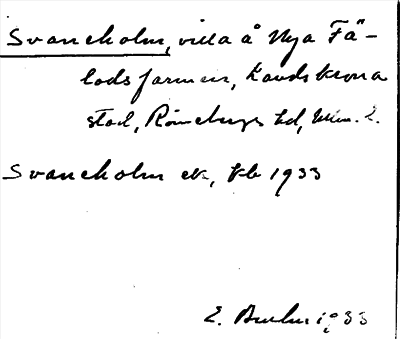 Svaneholm, villa å Nya Fä-
ladsfarmen, Landskrona
stad, Rönebergs hd, Mlm. l.
Svaneholm ek, Fb 1933
E. 1933